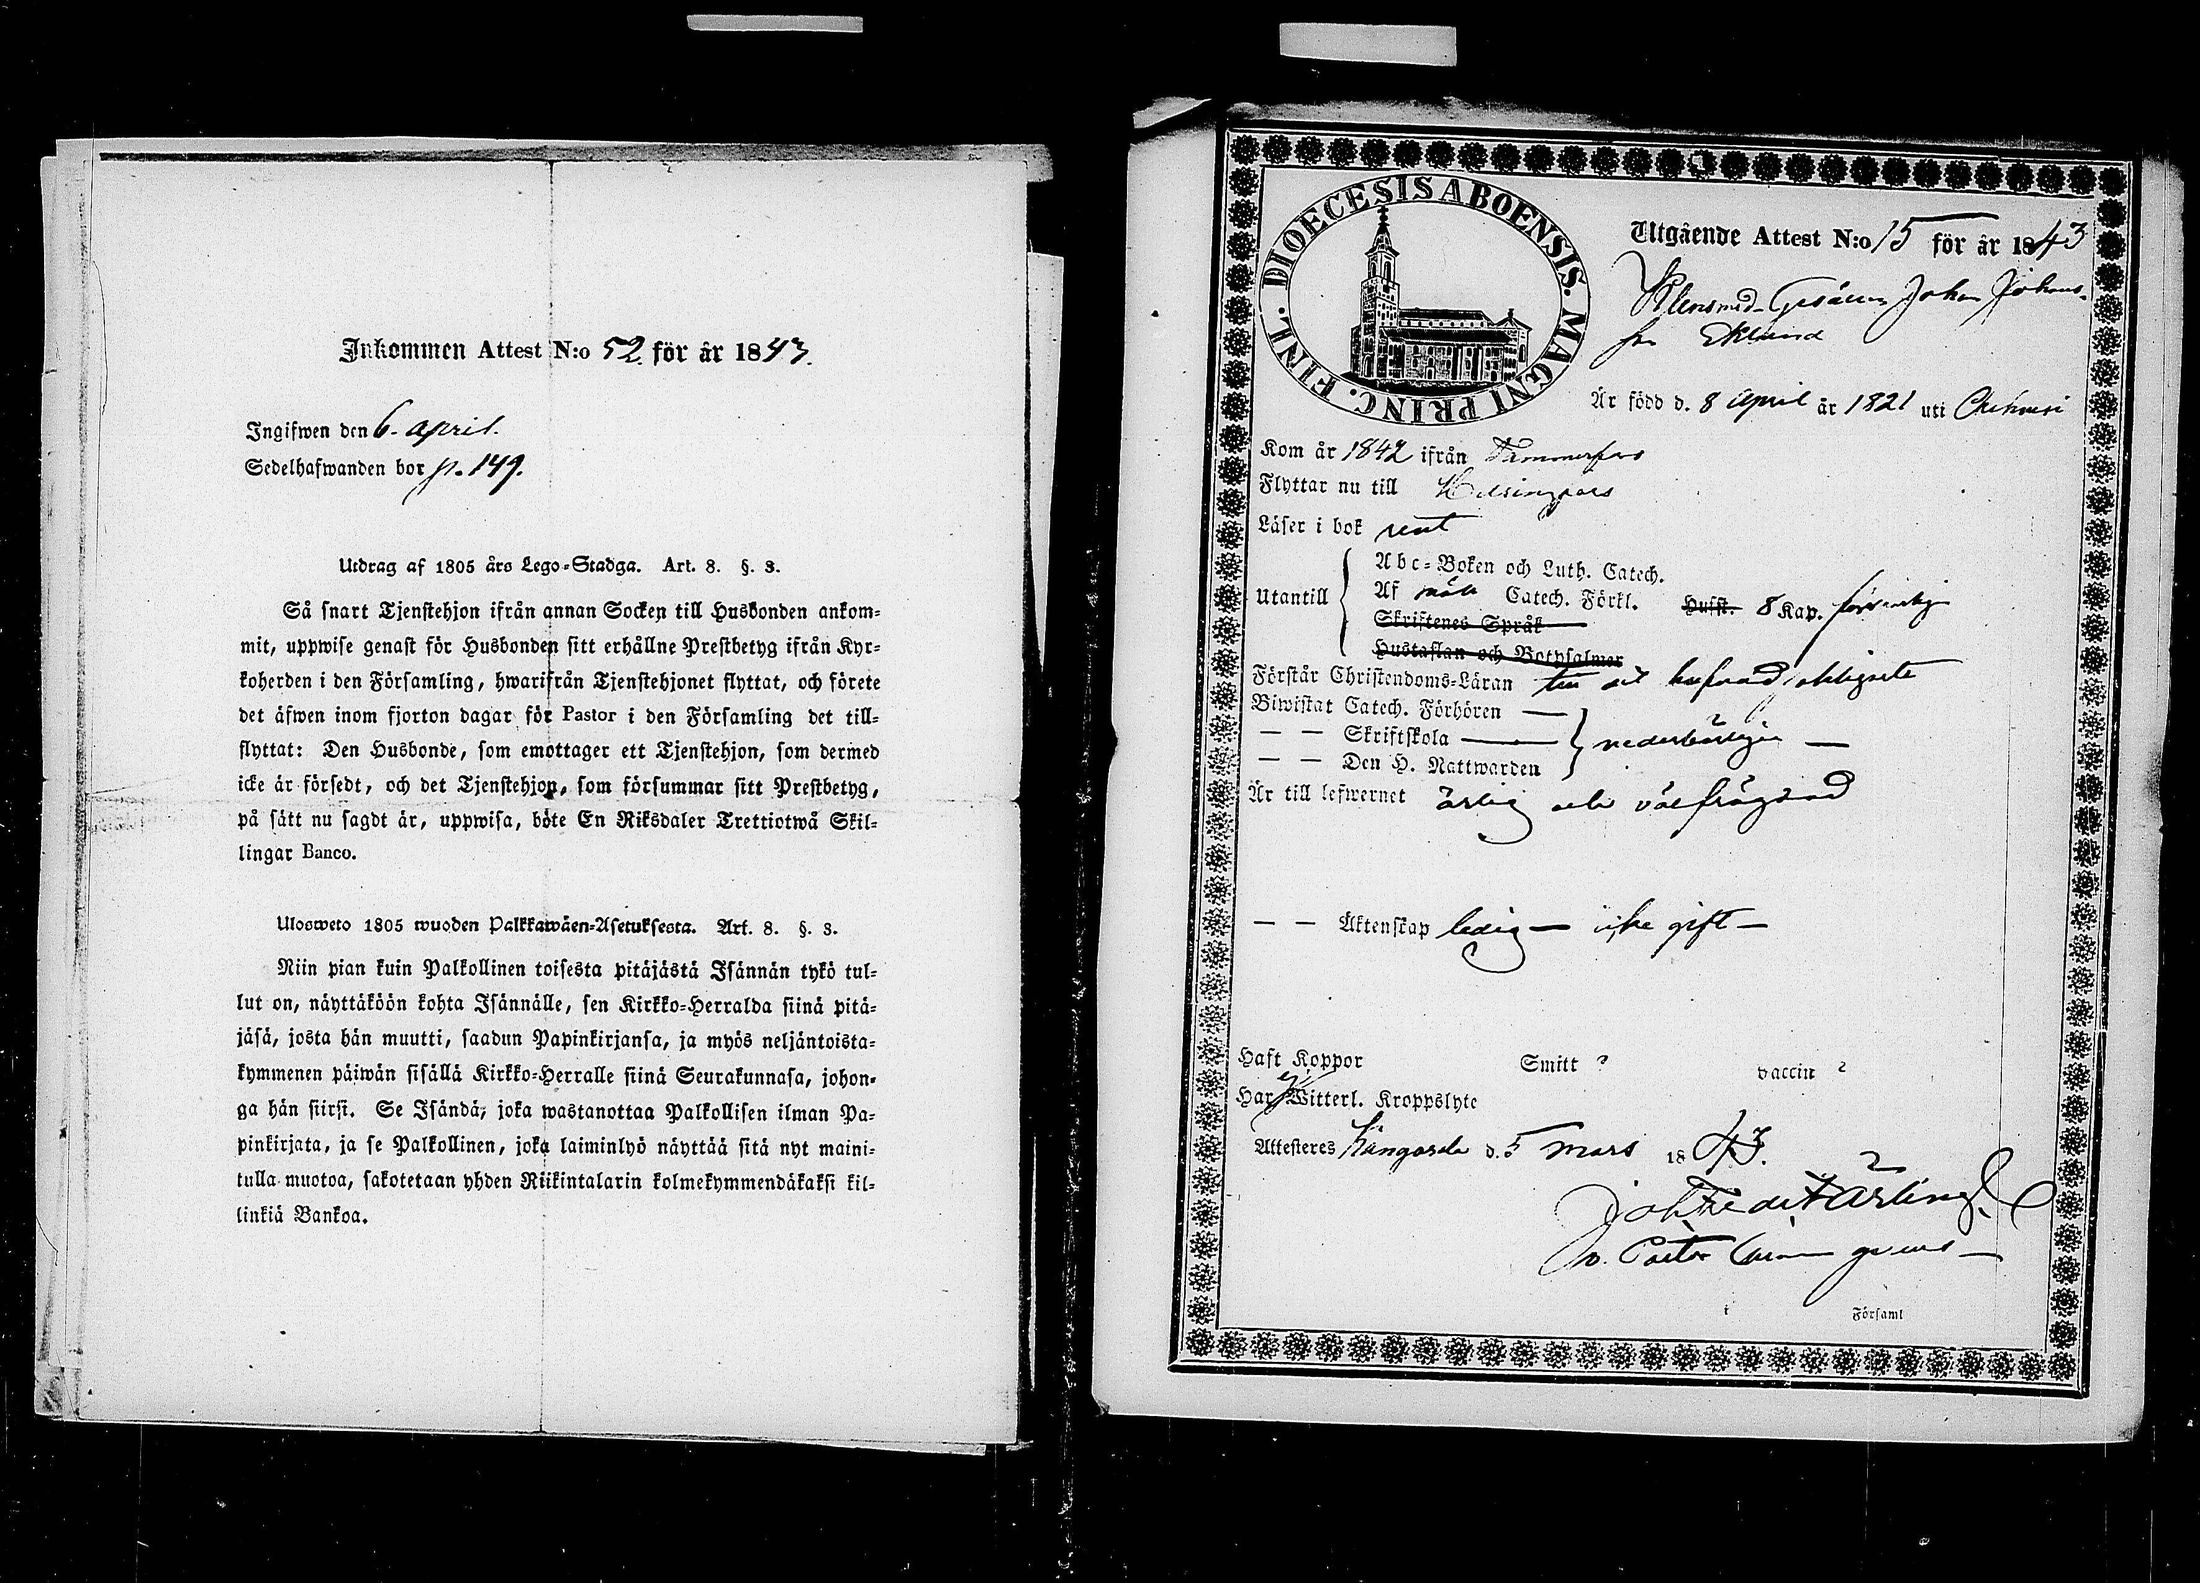 Inkommen Attest N:o 52. för år 1843.
Ingifwen den 6. april.
Sedelhafwanden bor p. 149.
Utdrag af 1805 års Lego-Stadga. Art. 8. §. 3.
Så snart Tjenstehjon ifrån annan Socken till Husbonden ankom-
mit, uppwise genast för Husbonden sitt erhållne Prestbetyg ifrån Kyr-
koherden i den Församling, hwarifrån Tjenstehjonet flyttat, och förete
det äfwen inom fjorton dagar för Pastor i den Församling det till-
flyttat: Den Husbonde, som emottager ett Tjenstehjon, som dermed
icke är försedt, och det Tjenstehjon, som försummar sitt Prestbetyg,
på sätt nu sagdt är, uppwisa, böte En Riksdaler Trettiotwå Skil-
lingar Banco.
Ulosweto 1805 wuoden Palkkawäen-Asetuksesta. Art. 8. §. 3.
Niin pian kuin Palkollinen toisesta pitäjästä Isännän tykö tul-
lut on, näyttäköön kohta Isännälle, sen Kirkko-Herralda siinä pitä-
jäsä, josta hän muutti, saadun Papinkirjansa, ja myös neljäntoista-
kymmenen päiwän sisällä Kirkko-Herralle siinä Seurakunnasa, johon-
ga hän siirsi. Se Isändä, joka wastanottaa Palkollisen ilman Pa-
pinkirjata, ja se Palkollinen, joka laiminlyö näyttää sitä nyt maini-
tulla muotoa, sakotetaan yhden Riikintalarin kolmekymmendäkaksi kil-
linkiä Bankoa.
DIOECESIS ABOENSIS. MAGNI PRINC. FINL.
Utgående Attest N:o 15 för år 1843
Klensmed-Gesällen Johan Johans-
son Eklund
Är född d. 8 April år 1821 uti Orihvesi
Kom år 1842 ifrån Tammerfors
Flyttar nu till Helsingfors
Läser i bok rent
Utantill
Abc-Boken och Luth. Catech.
Af Catech. Förkl. Husst. 8 Kap. försvarlig
Skriftenes Språk
Hustaflan och Botpsalmer
Förstår Christendoms-Läran
Biwistat Catech. Förhören —
— — Skriftskola — vederbörligen —
— — Den H. Nattwarden
Är till lefwernet ärlig och välfrägdad
— — Äktenskap ledig — icke gift —
Haft Koppor Smitt ? vaccin ?
Har ej Witterl. Kroppslyte
Attesteres Kangasala d. 5 mars 1843.
v. Pastor
i Församl